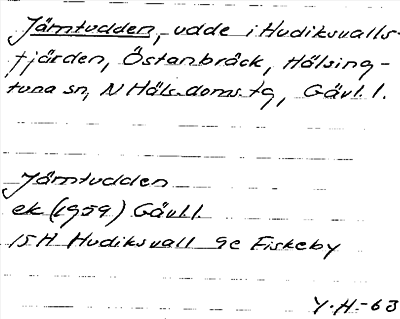 Järntudden, udde i Hudiksvalls-
fjärden, Östanbräck, Hälsing-
tuna sn, N Häls. doms. tg, Gävl. l.
Järntudden
ek (1959) Gävl l
15 H Hudiksvall 9e Fiskeby
Y.H.-63